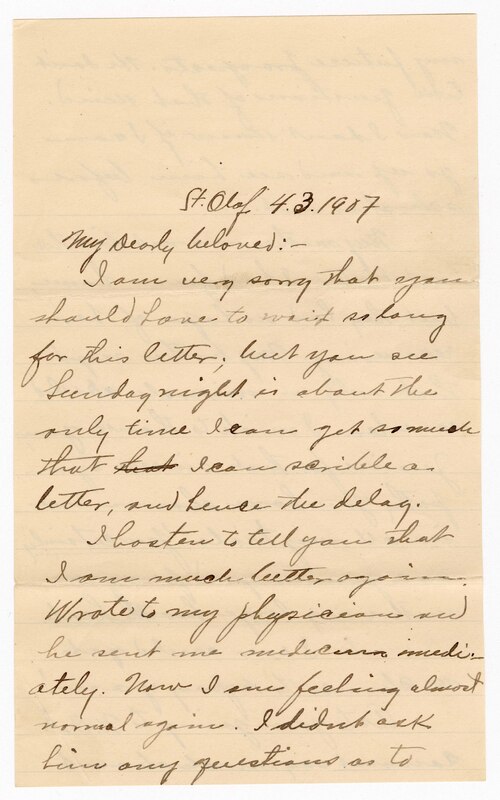 St. Olaf 4.3.1907
My Dearly beloved:-
I am very sorry that you
should have to wait so long
for this letter, but you see
Sunday night is about the
only time I can get so much
that that I can scribble a
letter, and hence the delay.
I hasten to tell you that
I am much better again.
Wrote to my physician and
he sent me medicine imedi-
ately. Now I am feeling almost
normal again. I didnt ask
him any questions as to